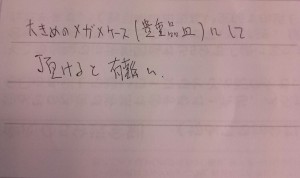 大きめのメガネケース(貴重品皿)にして
頂けると有難い.